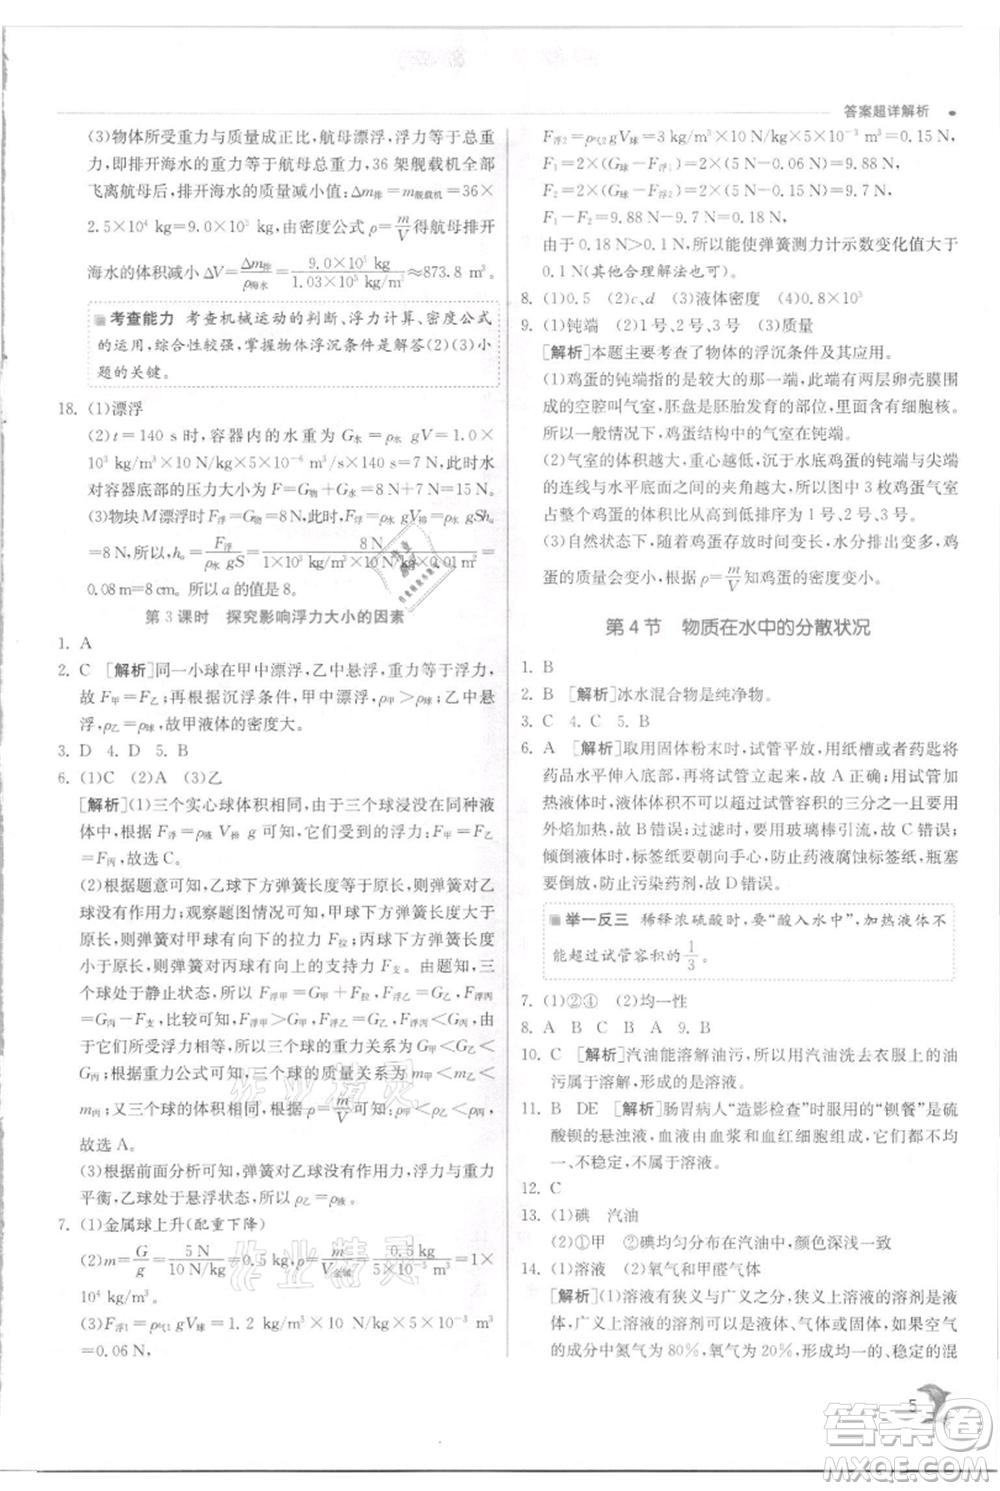 答案超详解析
(3)物体所受重力与质量成正比,航母漂浮,浮力等于总重
力,即排开海水的重力等于航母总重力,36 架舰载机全部
飞离航母后,排开海水的质量减小值:Δm排=m舰载机=36×
2.5×10⁴ kg=9.0×10⁵ kg,由密度公式 ρ=m/V 得航母排开
海水的体积减小 ΔV=Δm排/ρ海水=9.0×10⁵ kg/1.03×10³ kg/m³≈873.8 m³。
考查能力 考查机械运动的判断、浮力计算、密度公式
的运用,综合性较强,掌握物体浮沉条件是解答(2)(3)小
题的关键。
18. (1)漂浮
(2)t=140 s时,容器内的水重为 G水=ρ水 gV=1.0×
10³ kg/m³×10 N/kg×5×10⁻⁶ m³/s×140 s=7 N,此时水
对容器底部的压力大小 F=G物+G水=8 N+7 N=15 N。
(3)物块M漂浮时 F浮=G物=8 N,此时,F浮=ρ水 gV排=ρ水 gSh
=F浮/ρ水 gS=8 N/1×10³ kg/m³×10 N/kg×0.01 m²=
0.08 m=8 cm。所以 a 的值是 8。
第 3 课时 探究影响浮力大小的因素
1. A
2. C [解析]同一小球在甲中漂浮,乙中悬浮,重力等于浮力,
故 F甲=F乙;再根据沉浮条件,甲中漂浮,ρ甲>ρ球,乙中悬
浮,ρ乙=ρ球,故甲液体的密度大。
3. D 4. D 5. B
6. (1)C (2)A (3)乙
[解析](1)三个实心球体积相同,由于三个球浸没在同种液
体中,根据 F浮=ρ液 V排 g 可知,它们受到的浮力 F甲=F乙
=F丙,故选 C。
(2)根据题意可知,乙球下方弹簧长度等于原长,弹簧对乙
球没有力的作用;观察题图情况可知,甲球下方弹簧长度大
于原长,则弹簧对甲球有向下的拉力 F拉;丙球下方弹簧长
度小于原长,则弹簧对丙球有向上的支持力 F支。由于三
个球处于静止状态,所以 F浮甲=G甲+F拉,F浮乙=G乙,F浮丙
=G丙-F支,比较可知,F浮甲>G甲,F浮乙=G乙,F浮丙<G丙,由
于它们所受浮力相等,所以三个球的重力大小关系为G甲<G乙<
G丙,根据 G=mg 可知,三个球的质量大小关系为 m甲<m乙
<m丙,又三个球的体积相等,根据 ρ=m/V可知,ρ甲<ρ乙<ρ丙,
故选 A。
(3)根据前面分析可知,弹簧对乙球没有作用力,浮力与重力
平衡,乙球处于悬浮状态,所以 ρ乙=ρ液。
7. (1)金属球上升(配重下降)
(2)m=G/g=5 N/10 N/kg=0.5 kg,ρ金属=m/V金属=0.5 kg/5×10⁻⁵ m³=1×
10⁴ kg/m³。
(3)F浮1=ρ气1 gV球=1.2 kg/m³×10 N/kg×5×10⁻³ m³=
0.06 N,
F浮2=ρ气2 gV球=3 kg/m³×10 N/kg×5×10⁻³ m³=0.15 N,
F₁=2×(G球-F浮1)=2×(5 N-0.06 N)=9.88 N,
F₂=2×(G球-F浮2)=2×(5 N-0.15 N)=9.70 N,
F₁-F₂=9.88 N-9.70 N=0.18 N,
由于 0.18 N>0.1 N,所以能使弹簧测力计示数变化值大于
0.1 N(其他合理解法也可)。
8. (1)0.5 (2)c、d (3)液体密度 (4)0.8×10³
9. (1)钝端 (2)1号、2号、3号 (3)质量
[解析]本题主要考查了物体的浮沉条件及其应用。
(1)鸡蛋的钝端指的是较大的那一端,内有两层卵壳膜围
成的空腔叫气室,胚盘是胚胎发育的部位,内有细胞核。
所以一般情况下,鸡蛋结构中的气室在钝端。
(2)气室的体积越大,重心越低,沉于水底鸡蛋的钝端与尖端
的连线与水平方向的夹角越大,所以图中 3 枚鸡蛋气室
占整个鸡蛋的体积,由高到低排序为1号、2号、3号。
(3)自然状态下,随着鸡蛋存放时间变长,水分散发变多,
质量减小,体积不变,根据ρ=m/V可知鸡蛋的密度变小。
第 4 节 物质在水中的分散状况
1. B
2. B [解析]冰水混合物是纯净物。
3. C 4. C 5. B
6. A [解析]取用固体粉末时,试管平放,用纸槽或者药匙将
药品水平伸入底部,再将试管竖起来,故 A 正确;给试管加
热液体时,试管中的液体不可以大于试管容积的三分之一,用
外焰加热,故B错误;过滤时,要用玻璃棒引流,故C错误;
倾倒液体时,标签纸要朝向手心,防止药液腐蚀标签纸,瓶塞
要倒放,防止污染药剂,故 D 错误。
举一反三 稀释浓硫酸时,要“酸入水中”,加热液体不
能超过试管容积的1/3。
7. (1)②④ (2)均一性
8. A B A B 9. B
10. C [解析]汽油能溶解油污,所以用汽油洗去衣服上的油
污属于溶解,形成的是溶液。
11. B DE [解析]肠胃病人“造影检查”时服用的“钡餐”是硫
酸钡的悬浊液,血液由血浆和血红细胞组成,形成的不均
一、不稳定,不属于溶液。
12. C
13. (1)碘 汽油
(2)①甲 ②碘均匀分布在汽油中,颜色深浅一致
14. (1)溶液 (2)氧气和甲醛气体
[解析](1)溶液有狭义与广义之分,狭义上溶液为液体,
广义上溶液可以是液体、气体或固体,如果空气
的成分中氮气为 80%,氧气为 20%,均一的、稳定的混
5
答案卷
作业精灵
作业精灵